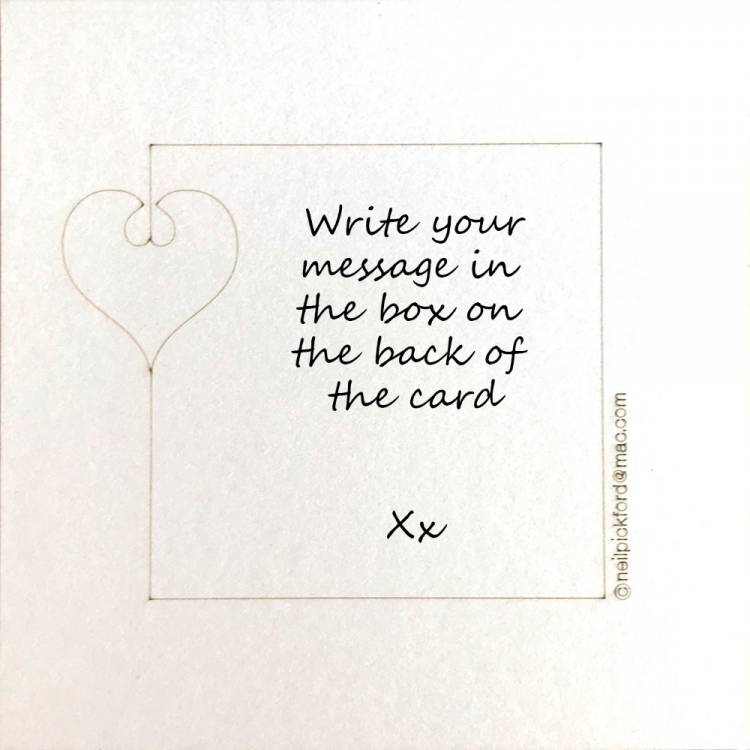 Write your
message in
the box on
the back of
the card
Xx
©neilpickford@mac.com